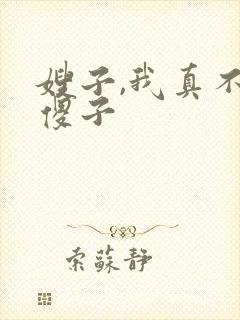 嫂子,我真不
傻子
索蘇靜